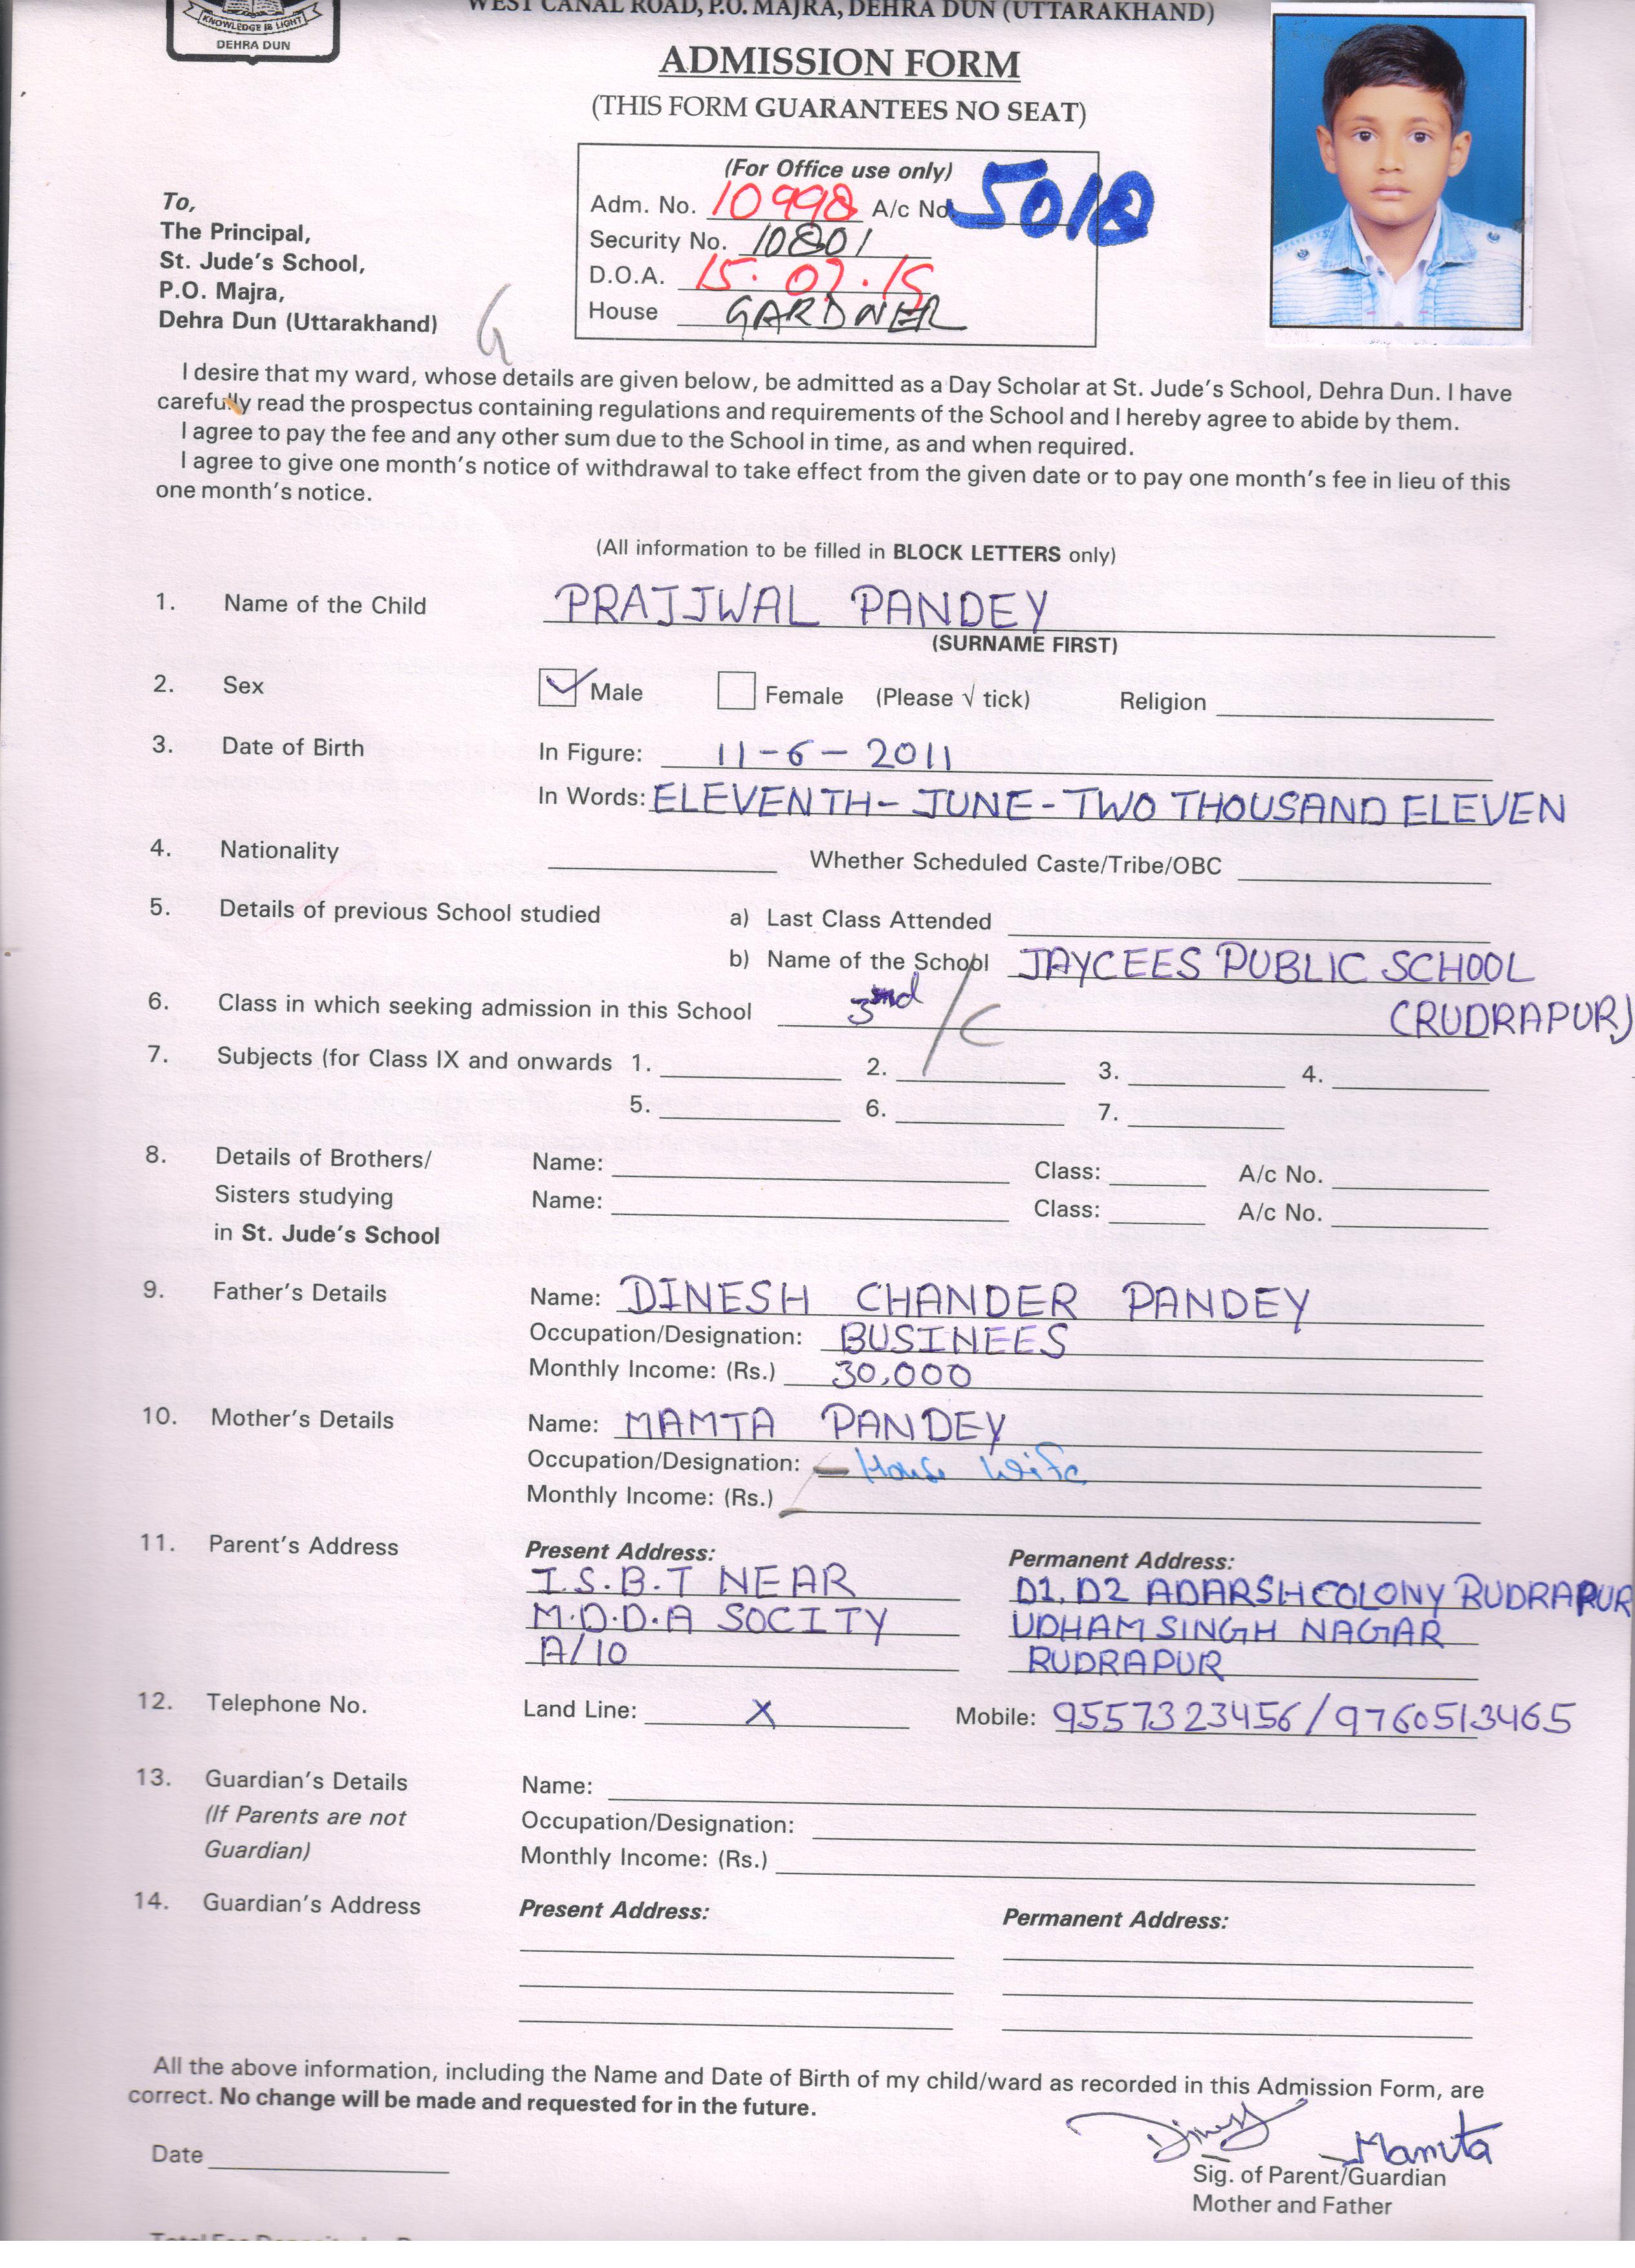 KNOWLEDGE IS LIGHT
DEHRA DUN
WEST CANAL ROAD, P.O. MAJRA, DEHRA DUN (UTTARAKHAND)
ADMISSION FORM
(THIS FORM GUARANTEES NO SEAT)
(For Office use only)
Adm. No. 10998 A/c No. 5018
Security No. 10801
D.O.A. 15.07.15
House GARDNER
To,
The Principal,
St. Jude's School,
P.O. Majra,
Dehra Dun (Uttarakhand)
G
I desire that my ward, whose details are given below, be admitted as a Day Scholar at St. Jude's School, Dehra Dun. I have
carefully read the prospectus containing regulations and requirements of the School and I hereby agree to abide by them.
I agree to pay the fee and any other sum due to the School in time, as and when required.
I agree to give one month's notice of withdrawal to take effect from the given date or to pay one month's fee in lieu of this
one month's notice.
(All information to be filled in BLOCK LETTERS only)
1. Name of the Child PRAJJWAL PANDEY
(SURNAME FIRST)
2. Sex Male Female (Please √ tick) Religion
3. Date of Birth In Figure: 11-6-2011
In Words: ELEVENTH-JUNE-TWO THOUSAND ELEVEN
4. Nationality Whether Scheduled Caste/Tribe/OBC
5. Details of previous School studied a) Last Class Attended
b) Name of the School JAYCEES PUBLIC SCHOOL
6. Class in which seeking admission in this School 3 /C (RUDRAPUR)
7. Subjects (for Class IX and onwards 1. 2. 3. 4.
5. 6. 7.
8. Details of Brothers/ Name: Class: A/c No.
Sisters studying Name: Class: A/c No.
in St. Jude's School
9. Father's Details Name: DINESH CHANDER PANDEY
Occupation/Designation: BUSINEES
Monthly Income: (Rs.) 30,000
10. Mother's Details Name: MAMTA PANDEY
Occupation/Designation: House Wife
Monthly Income: (Rs.)
11. Parent's Address Present Address: Permanent Address:
I.S.B.T NEAR D1, D2 ADARSH COLONY RUDRAPUR
M.D.D.A SOCITY UDHAM SINGH NAGAR
A/10 RUDRAPUR
12. Telephone No. Land Line: X Mobile: 9557323456/9760513465
13. Guardian's Details Name:
(If Parents are not Occupation/Designation:
Guardian) Monthly Income: (Rs.)
14. Guardian's Address Present Address: Permanent Address:
All the above information, including the Name and Date of Birth of my child/ward as recorded in this Admission Form, are
correct. No change will be made and requested for in the future.
Dinesh Mamta
Date
Sig. of Parent/Guardian
Mother and Father